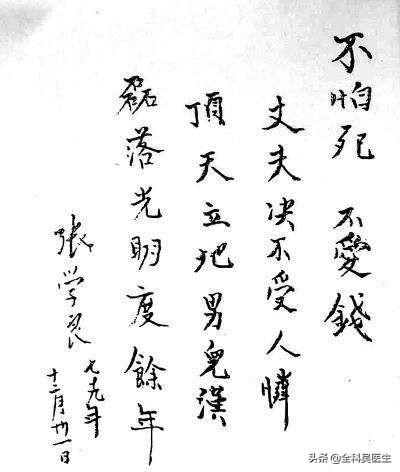 不怕死 不愛錢
丈夫決不受人憐
頂天立地男兒漢
磊落光明度餘年
張学良
七九年
十二月廿一日
头条@全科吴医生